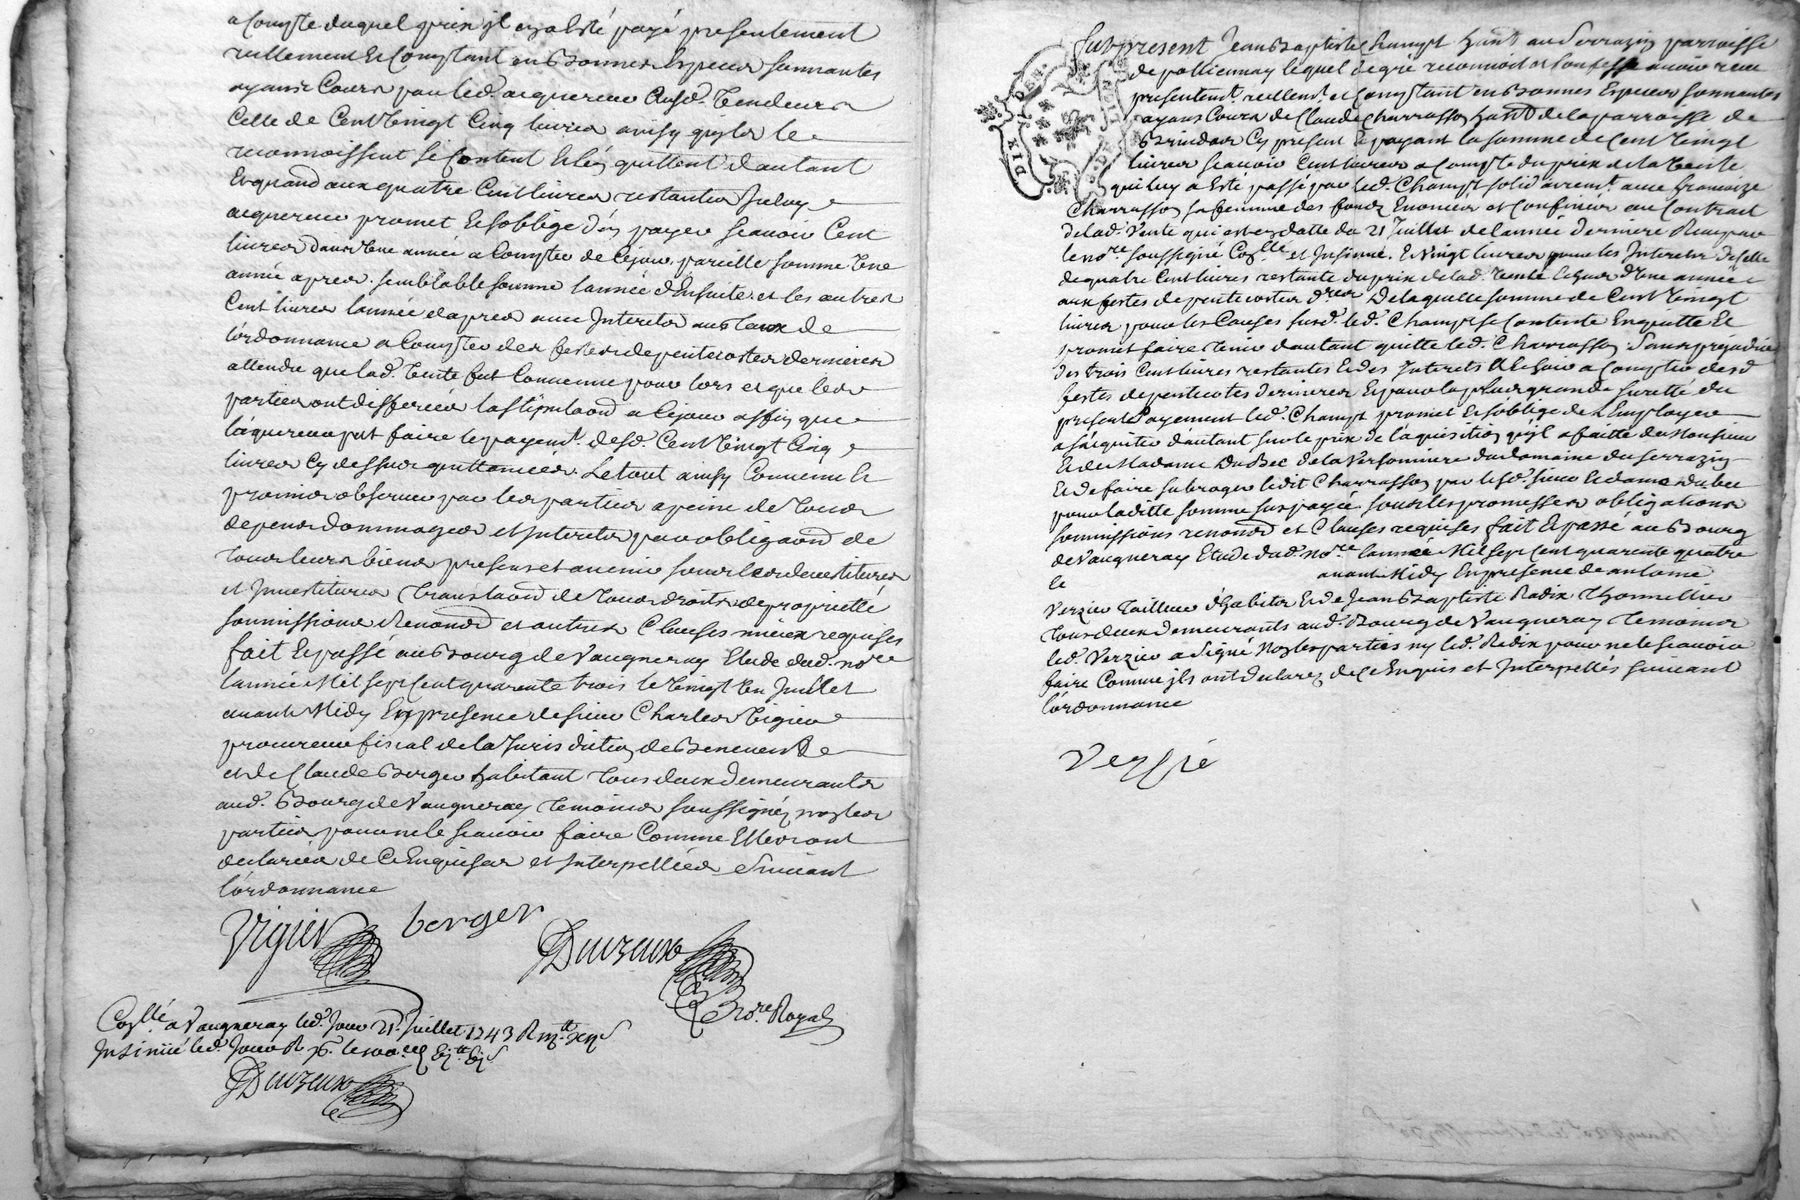 a Compte duquel prix jl en a esté payé presentement
reellement et Comptant en Bonnes Especes sonnantes
ayants Cours par led. acquereur Ausd. Vendeurs
Celle de Cent Vingt Cinq livres ainsy quils le
reconnoissent se Content et len quittent d'autant
Et quand aux quatre Cent livres restantes jceluy
acquereur promet et soblige d'en payer scauoir Cent
livres dans Vne année a Compter de Cejour, pareille somme Vne
année apres, semblable somme lannée d'Ensuite et les autres
Cent livres lannée dapres auec Interets au taux de
l'ordonnance a Compter des festes de pentecostes dernieres
attendu que lad. Vente fut Conuenue pour lors et que les
parties ont defferées la stipulaond a Cejour affin que
laquereur put faire le payemt. desd. Cent Vingt Cinq
livres Cy dessus quittancées. Le tout ainsy Conuenu Et
promis obseruer par les parties a peine de tous
depens dommages et Interets par obligaond de
tous leurs biens presens et auenir sous les deuestitures
et Inuestitures translaond de tous droits de proprietté
soumissions Renonond et autres Clauses mieux requises
fait Et passé au Bourg de Vaugneray Etude dud. nore
lannée Mil sept Cent quarente trois le Vingt Vn Juillet
auant Midy En presence de sieur Charles Vigier
procureur fiscal de la Jurisdiction de Beneuent
et de Claude Berger habitant tous deux demeurants
aud. Bourg de Vaugneray temoins soussignéz non les
parties pour ne le scauoir faire Comme Elles ont
declarées de Ce Enquises et Interpellées Suiuant
l'ordonnance
Vigier berger
Duvzeux
Nore. Royal
Conllé a Vaugneray led. Jour 21e. Juillet 1743 R
Insinüé led. Jour R
Duvzeux
fut present Jean Baptiste Champt hant au Serrazin parroisse
de pollionnay lequel de gré reconnoit et Confesse auoir receu
presentemt. reellemt. et Comptant en Bonnes Especes sonnantes
ayans Cours de Claude Charrasson hant de la parroisse de
Brindas Cy present Et payant la somme de Cent Vingt
livres scauoir Cent livres a Compte du prix de la Vente
qui luy a esté passé par led. Champt solidairemt. auec francoize
Charrasson sa femme des fonds Enoncés et Confinés au Contrat
de lad. Vente qui est en datte du 21 Juillet de lannée derniere Receu par
le nore. soussigné Conllé et Insinué. Et Vingt livres pour les Interets de Celle
de quatre Cent livres restante du prix de lad. Vente Echus d'Vne année
aux festes de pentecostes dres De laquelle somme de Cent Vingt
livres pour les Causes susd. led. Champt se Contente En quitte Et
promet faire tenir dautant quitte led. Charrasson. Sans prejudice
des trois Cent livres restantes Et des Interets Il Echoir a Compter desd
festes de pentecotes dernieres Et pour la plus grande suretté du
present payement led. Champt promet Et soblige de l'Employer
a saquiter dautant sur le prix de laquisition quil a faitte de Monsieur
Et de Madame Dubec de la Versonniere du domaine du serrazin
Et de faire subroger ledit Charrasson par lesd. sieur Et dame dubec
pour laditte somme sus payée sous les promesses obligations
soumissions renonond et Clauses requises fait Et passé au Bourg
de Vaugneray Etude dud. nore. lannée Mil sept Cent quarente quatre
le auant Midy En presence de antoine
Verzieu tailleur d'habits Et de Jean Baptiste Radix thonnellier
tous deux demeurants aud. Bourg de Vaugneray temoins
led. Verzieu a signé Non les parties ny led. Radix pour ne le scauoir
faire Comme jls ont declarez de Ce Enquis et Interpellés suiuant
l'ordonnance
Versié